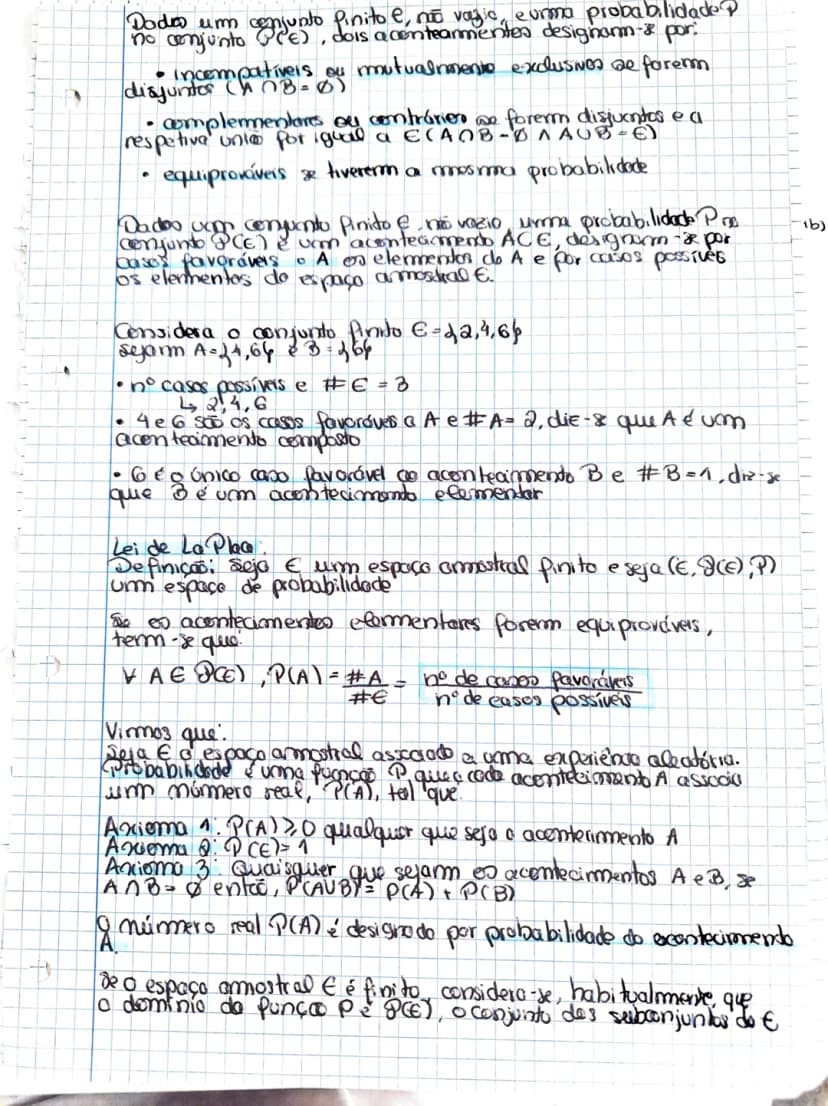 Dados um conjunto finito E, não vazio, e uma probabilidade P
no conjunto P(E), dois acontecimentos designam-se por:
• incompatíveis ou mutuamente exclusivos se forem
disjuntos (A ∩ B = ∅)
• complementares ou contrários se forem disjuntos e a
respetiva união for igual a E (A ∩ B = ∅ ∧ A ∪ B = E)
• equiprováveis se tiverem a mesma probabilidade
Dados um conjunto finito E, não vazio, uma probabilidade P no
1b)
conjunto P(E) e um acontecimento A ⊂ E, designam-se por
casos favoráveis a A os elementos de A e por casos possíveis
os elementos do espaço amostral E.
Considera o conjunto finito E = {2,4,6}
sejam A = {4,6} e B = {6}
• nº casos possíveis e #E = 3
↳ 2,4,6
• 4 e 6 são os casos favoráveis a A e #A = 2, diz-se que A é um
acontecimento composto
• 6 é o único caso favorável ao acontecimento B e #B = 1, diz-se
que B é um acontecimento elementar
Lei de LaPlace:
Definição: Seja E um espaço amostral finito e seja (E, P(E), P)
um espaço de probabilidade
Se os acontecimentos elementares forem equiprováveis,
tem-se que:
∀ A ∈ P(E), P(A) = #A/#E = nº de casos favoráveis/nº de casos possíveis
Vimos que:
Seja E o espaço amostral associado a uma experiência aleatória.
Probabilidade é uma função P que a cada acontecimento A associa
um número real, P(A), tal que:
Axioma 1: P(A) ⩾ 0 qualquer que seja o acontecimento A
Axioma 2: P(E) = 1
Axioma 3: Quaisquer que sejam os acontecimentos A e B, se
A ∩ B = ∅ então, P(A∪B) = P(A) + P(B)
O número real P(A) é designado por probabilidade do acontecimento
A.
Se o espaço amostral E é finito, considera-se, habitualmente, que
o domínio da função P é P(E), o conjunto dos subconjuntos de E